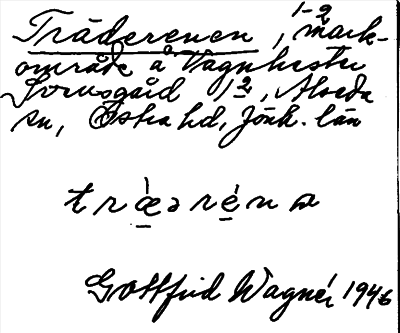 Träderenen, 1-2 mark-
område å Vagnhester
Sorusgård 1 2, Alseda
sn, Östra hd, Jönk. län
t r æ ə r é n a
Gottfrid Wagnér 1946